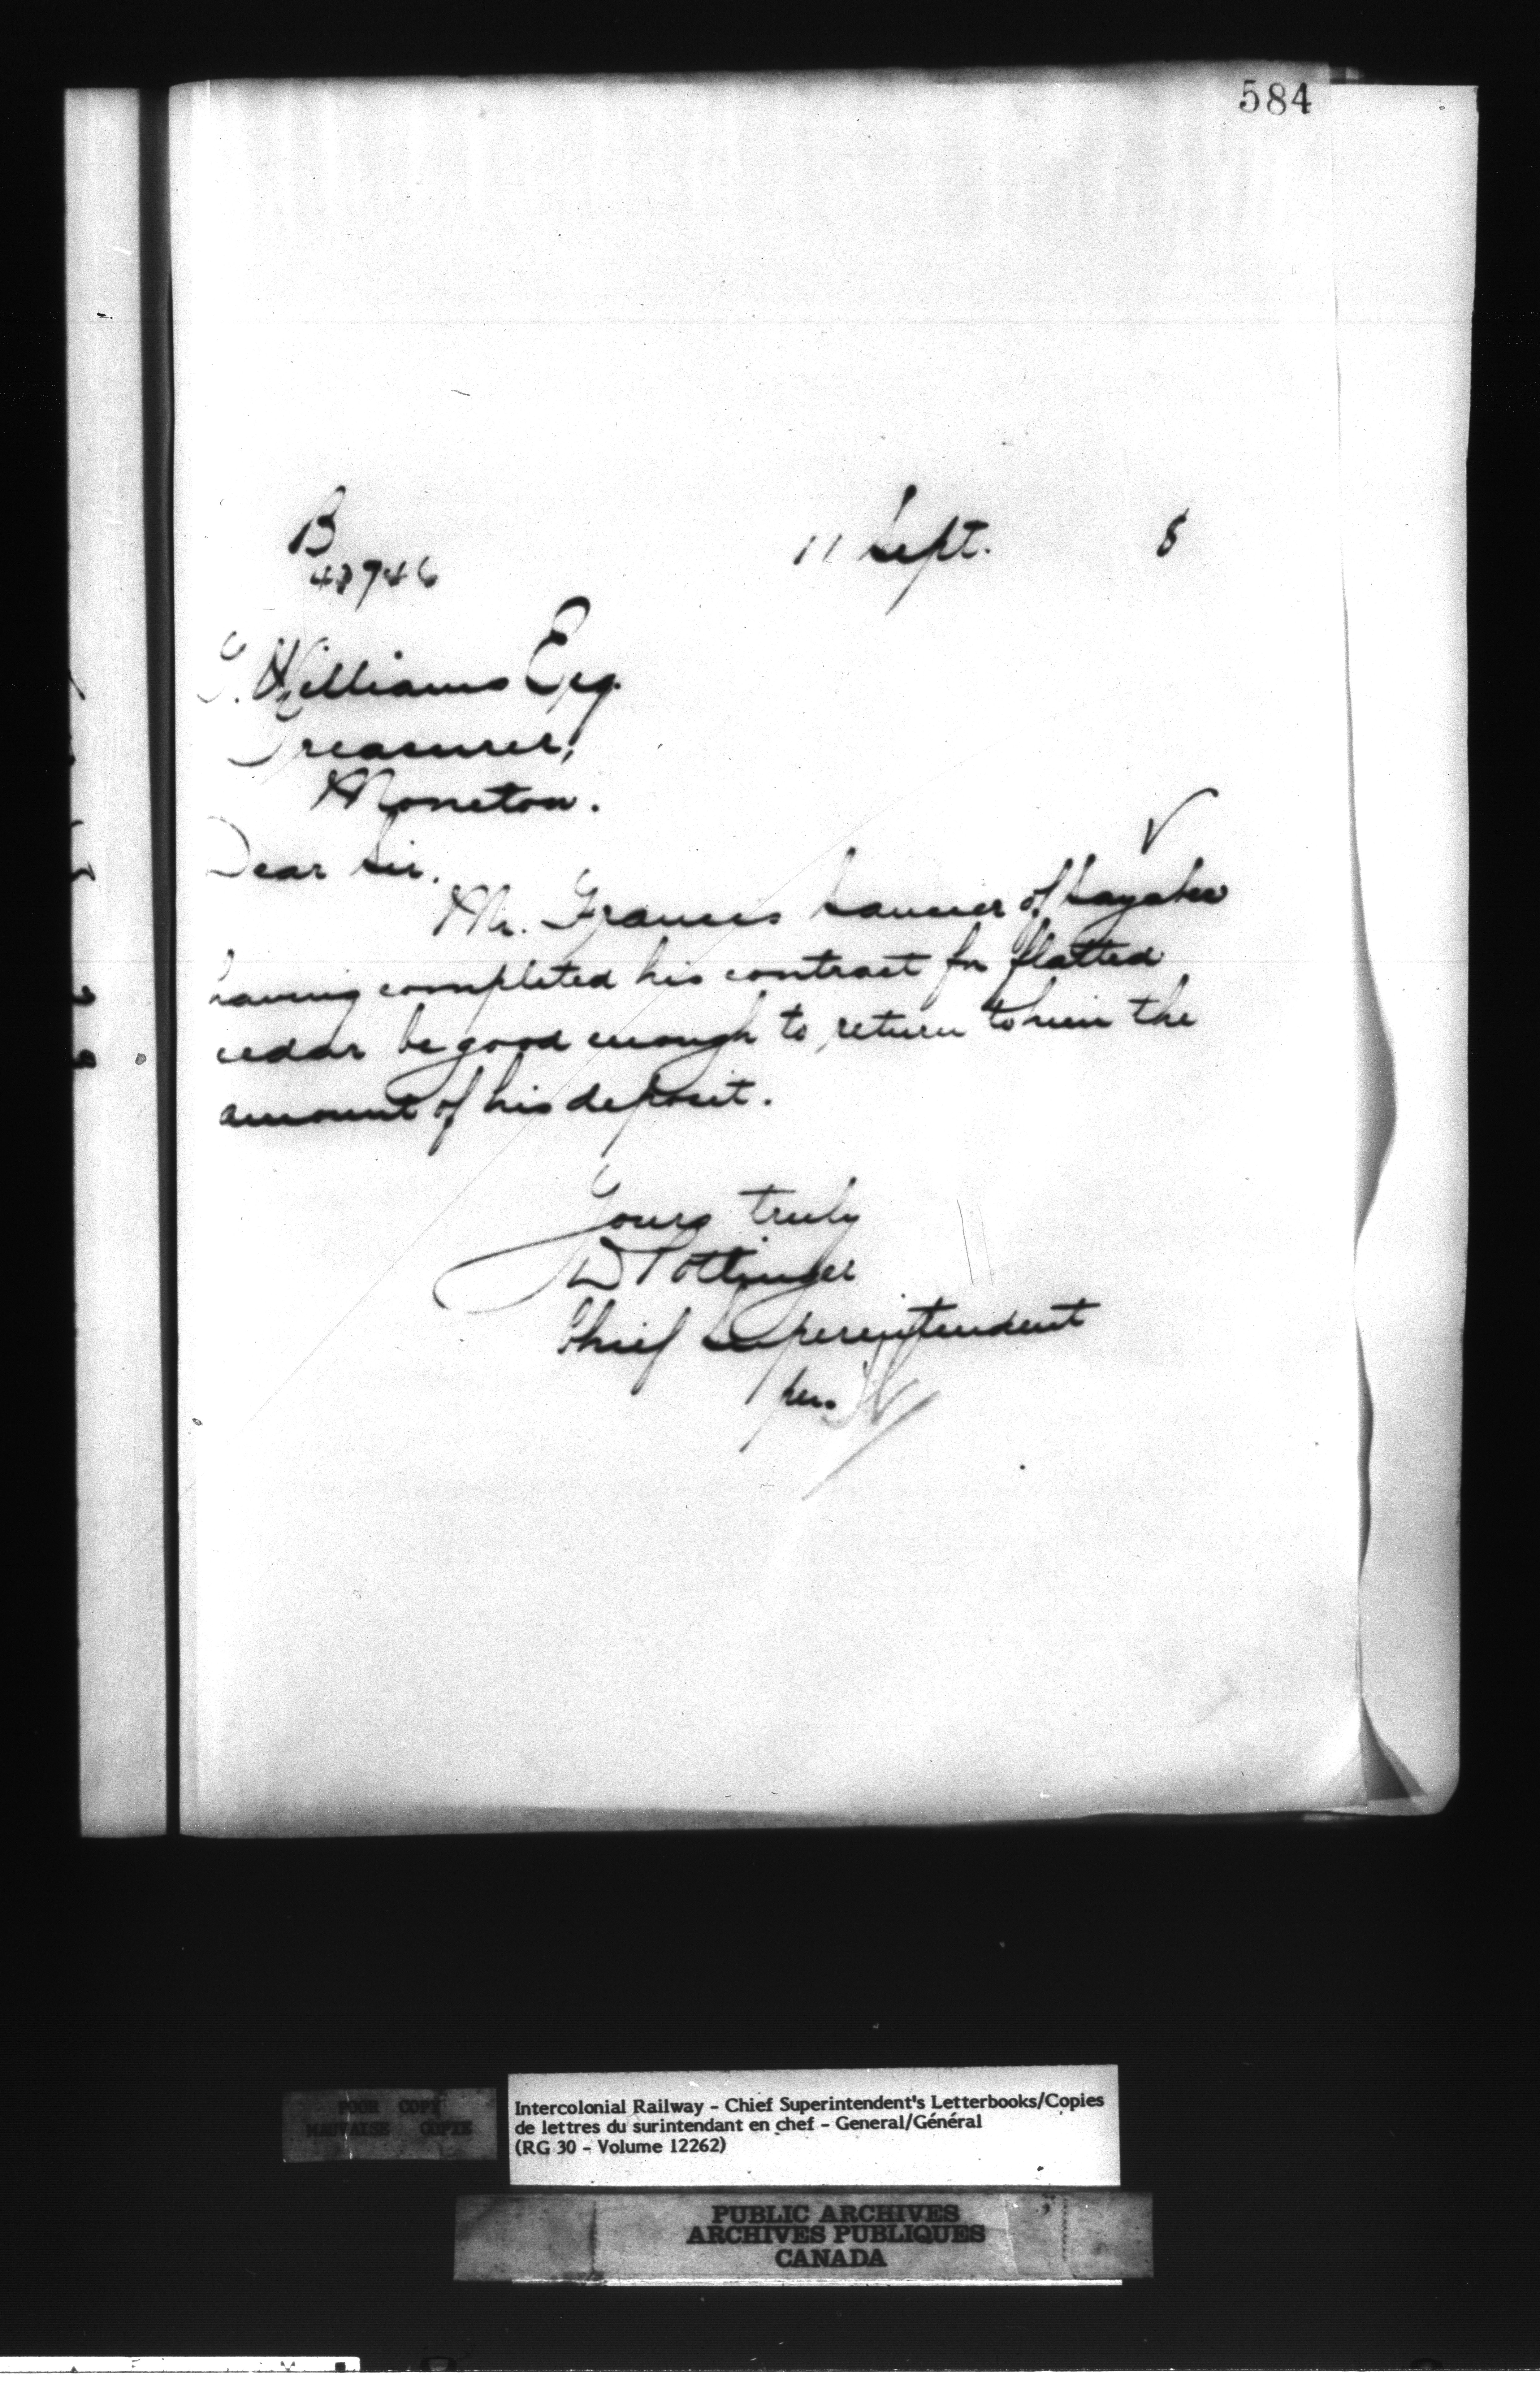 584
B 11 Sept. 8
T. Williams Esq.
Treasurer,
Moncton.
Dear Sir.
Mr. Frances of Sayabec
having completed his contract for flatted
cedar be good enough to return to him the
amount of his deposit.
Yours truly
D Pottinger
Chief Superintendent
per.
POOR COPY
MAUVAISE COPIE
Intercolonial Railway - Chief Superintendent's Letterbooks/Copies
de lettres du surintendant en chef - General/Général
(RG 30 - Volume 12262)
PUBLIC ARCHIVES
ARCHIVES PUBLIQUES
CANADA